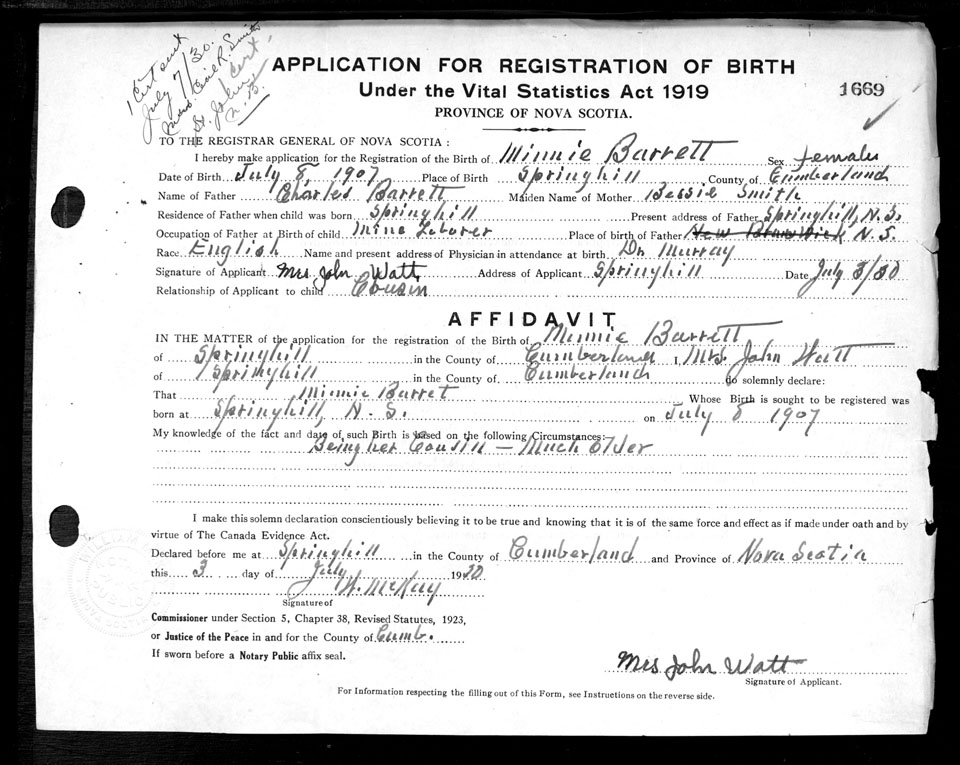 1 Cert sent
July 7/30.
Mrs. R. Smith
St. John
N.B.
Cert
APPLICATION FOR REGISTRATION OF BIRTH
Under the Vital Statistics Act 1919
1669
PROVINCE OF NOVA SCOTIA.
TO THE REGISTRAR GENERAL OF NOVA SCOTIA:
I hereby make application for the Registration of the Birth of Minnie Barrett Sex female
Date of Birth July 8, 1907 Place of Birth Springhill County of Cumberland
Name of Father Charles Barrett Maiden Name of Mother Bessie Smith
Residence of Father when child was born Springhill Present address of Father Springhill, N.S.
Occupation of Father at Birth of child Mine Laborer Place of birth of Father New Brunswick N.S.
Race English Name and present address of Physician in attendance at birth Dr Murray
Signature of Applicant Mrs John Watt Address of Applicant Springhill Date July 3/30
Relationship of Applicant to child Cousin
AFFIDAVIT
IN THE MATTER of the application for the registration of the Birth of Minnie Barrett
of Springhill in the County of Cumberland I, Mrs. John Watt
of Springhill in the County of Cumberland do solemnly declare:
That Minnie Barret Whose Birth is sought to be registered was
born at Springhill, N.S. on July 8 1907
My knowledge of the fact and date of such Birth is based on the following Circumstances:
Being her Cousin – Much Older
I make this solemn declaration conscientiously believing it to be true and knowing that it is of the same force and effect as if made under oath and by
virtue of The Canada Evidence Act.
Declared before me at Springhill in the County of Cumberland and Province of Nova Scotia
this 3 day of July 1930
W. McKay
Signature of
Commissioner under Section 5, Chapter 38, Revised Statutes, 1923,
or Justice of the Peace in and for the County of Cumb.
If sworn before a Notary Public affix seal.
Mrs John Watt
Signature of Applicant.
For Information respecting the filling out of this Form, see Instructions on the reverse side.